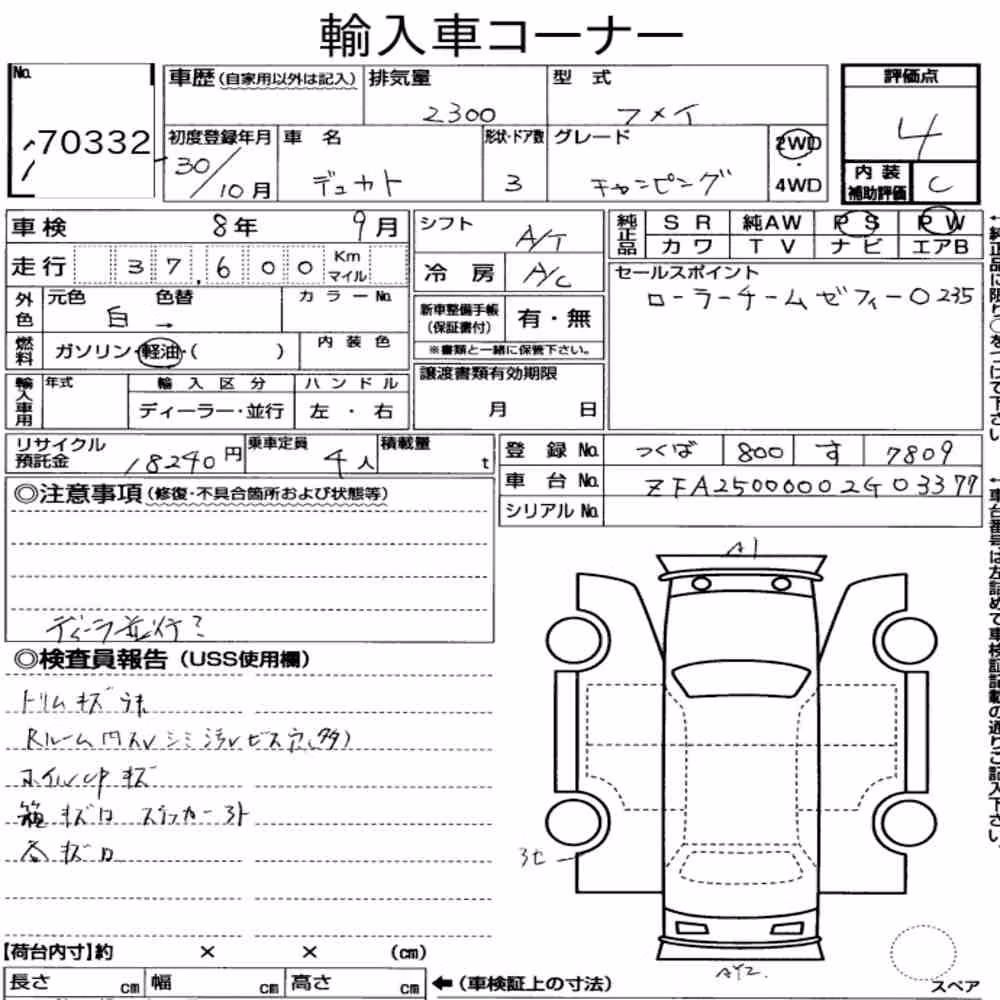 輸入車コーナー
No. 70332
車歴 (自家用以外は記入)
排気量 2300
型式 フメイ
初度登録年月 30/10月
車名 デュカト
形状・ドア数 3
グレード キャンピング
2WD・4WD
評価点 4
内装補助評価 C
車検 8年 9月
走行 37,600 Km マイル
外色 元色 白 → 色替 カラーNo.
燃料 ガソリン・軽油・( ) 内装色
輸入車用 年式 輸入区分 ハンドル
ディーラー・並行 左・右
シフト A/T
冷房 A/C
新車整備手帳(保証書付) 有・無
※書類と一緒に保管下さい。
譲渡書類有効期限
月 日
純正品 SR 純AW PS PW
カワ TV ナビ エアB
セールスポイント
ローラーチームゼフィーロ235
リサイクル預託金 18240円
乗車定員 4人
積載量 t
登録No. つくば 800 す 7809
車台No. ZFA25000002G03377
シリアルNo.
◎注意事項(修復・不具合箇所および状態等)
ディーラ並行?
◎検査員報告(USS使用欄)
トリムキズ
Rルーム内 シミ汚レビス穴(多)
ホイルcpキズ
箱キズロ ステッカー跡
各キズロ
A1
AY2
スペア
【荷台内寸】約 × × (cm)
長さ cm 幅 cm 高さ cm ←(車検証上の寸法)
←純正品に限り○をつけて下さい
←車台番号は左詰めで車検証記載の通りご記入下さい。